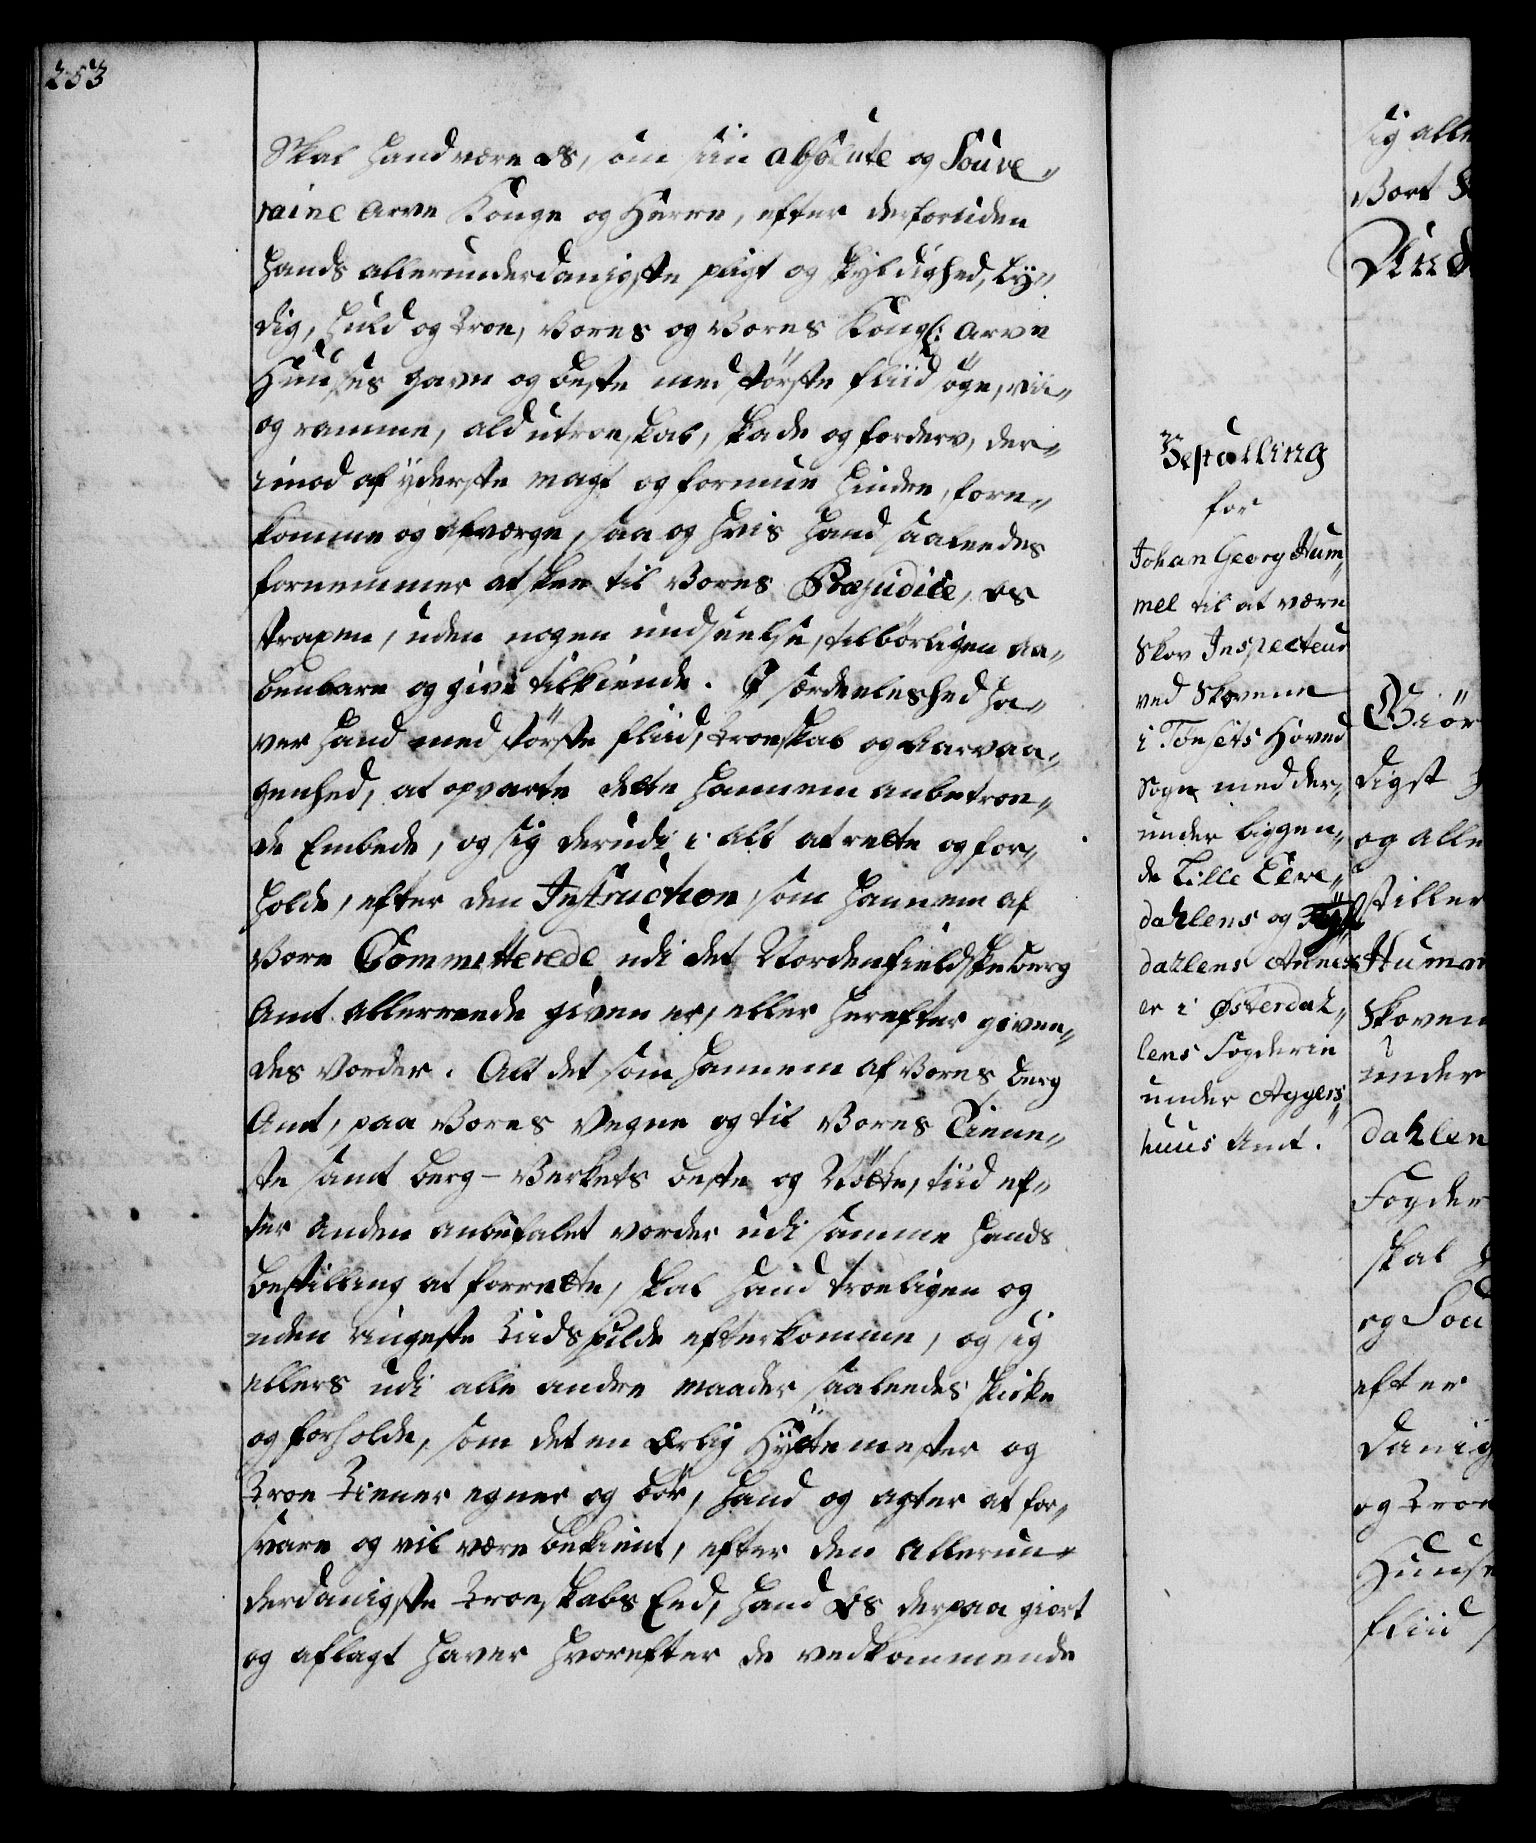 253
Skal hand være os, som siin absolute og Souve„
raine Arve Konge og Herre, efter derforuden
hands allerunderdanigste pligt og skyldighed, Ly„
dig, huld og Troe, Vores og Vores Kongl: Arve
Huuses gavn og beste med störste fliid söge, vii„
og ramme, ald utroeskab, skade og forderv, der„
imod af yderste magt og formue hindre, fore„
komme og afværge, saa og hvis hand saaledes
fornemmer at skee til Vores Præjudice, os
straxen, uden nogen undseelse, tilbörligen aa„
benbare og give tilkiende. I særdeeleshed ha„
ver hand med störste fliid, troeskab og aarvaa„
genhed, at opvarte dette hannem anbetroe„
de Embede, og sig derudi i alt at rette og for„
holde, efter den Instruction, som hannem af
Vore Committerede udi det Nordenfieldske berg
Amt allerreede given er, eller herefter given„
des vorder. Alt det som hannem af Vores berg
Amt, paa Vores Vegne og til Vores Tiene„
ste samt berg-Verkets beste og Nötte, tiid ef„
ter anden anbefalet vorder udi samme hands
bestilling at forrette, skal hand troeligen og
uden ringeste Tiidspilde efterkomme, og sig
ellers udi alle andre maader saaledes skicke
og forholde, som det en ærlig Hyttemester og
Troe Tiener egner og bör, hand og agter at for„
svare og vil være bekient, efter den allerun„
derdanigste Troeskabs Eed, hand os derpaa giort
og aflagt haver hvorefter de vedkommende
Bestalling
for
Johan Georg Hum„
mel til at være
Skov Inspecteur
ved Skovene
i Tönsets Hoved
Sogn med der„
under liggen„
de Lille Elve„
dahlens og
dahlens Annex
er i Østerdah„
lens Fogderie
under Aggers„
huus Amt.
sig alle
Vort
Giör
digst
og alle
stiller
Humm
Skoven
under
dahlen
Fogder
skal
og Sou
efter
danig
og Troe
Huuse
fliid